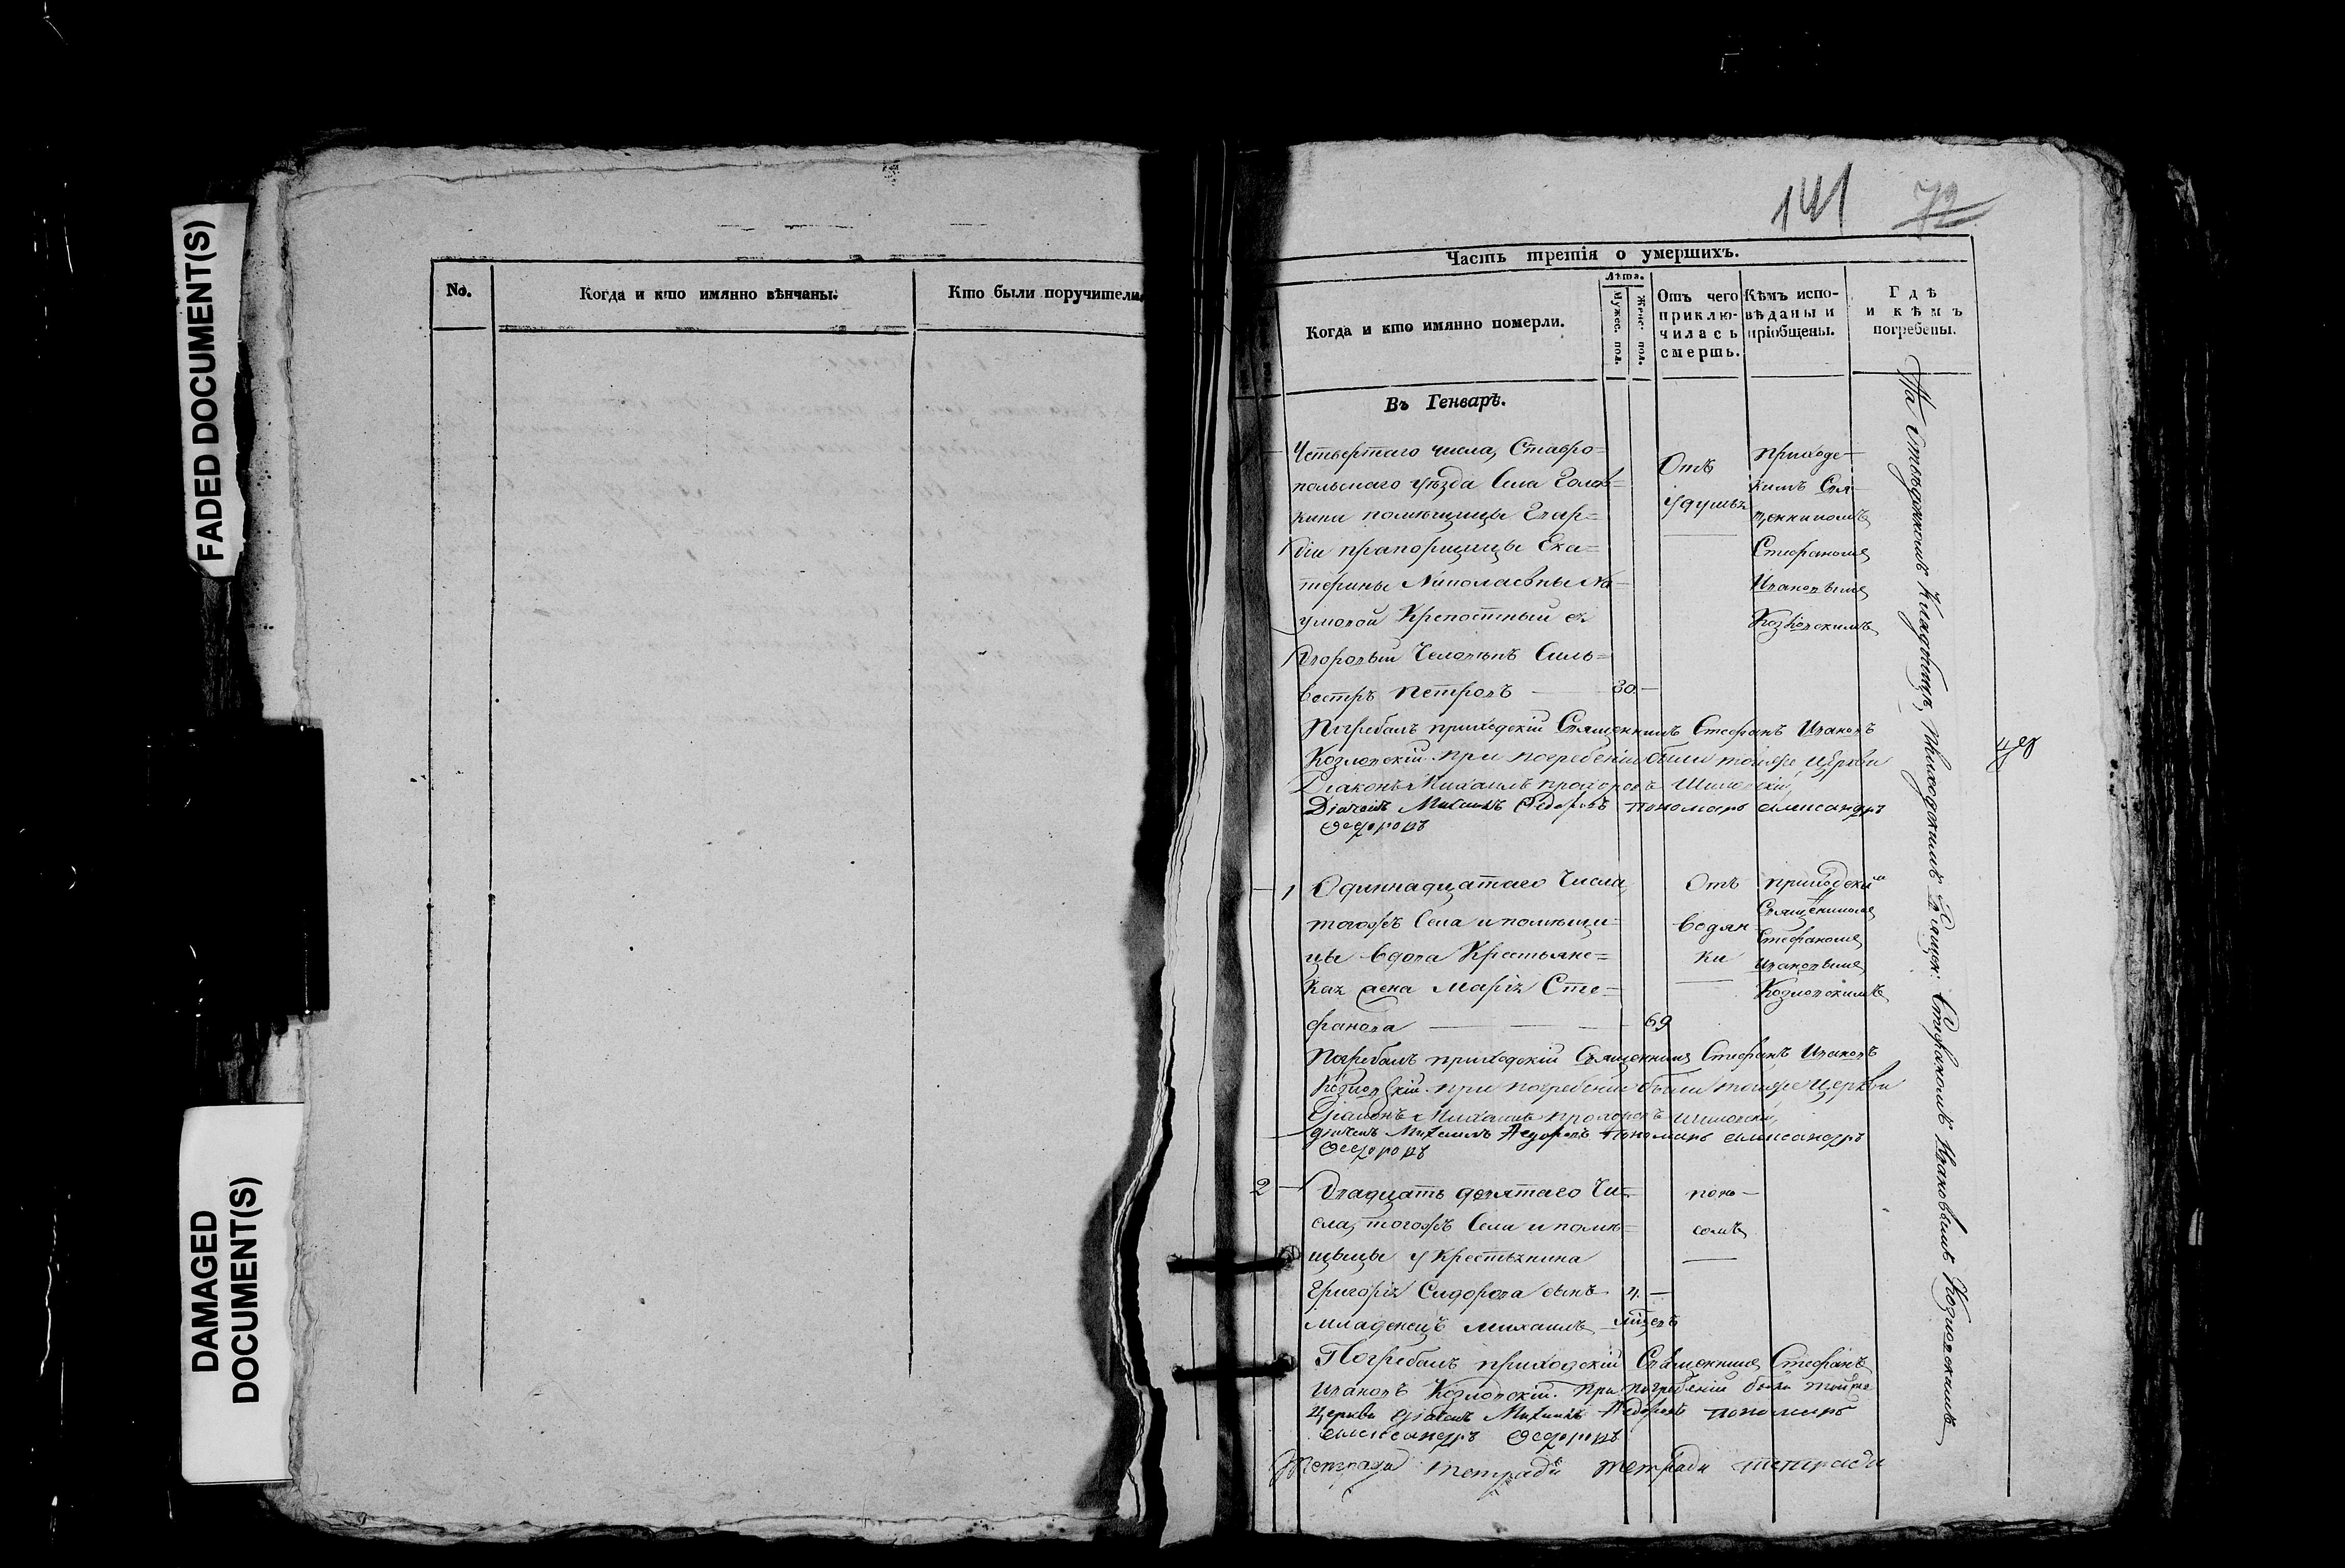 FADED DOCUMENT(S)
DAMAGED
DOCUMENT(S)
No.
Когда и кто имянно вѣнчаны.
Кто были поручители
141
72
Часть третія о умершихъ.
Когда и кто имянно померли.
Лѣта.
Мужес. пол.
Женс. пол.
Отъ чего
приклю-
чилась
смерть.
Кѣмъ испо-
вѣданы и
пріобщены.
Гдѣ
и кѣмъ
погребены.
Въ Генварѣ.
Четвертаго числа, Ставро=
польскаго уѣзда Села Голов=
кина помѣщицы Гвар=
діи прапорщицы Ека=
терины Николаевны На=
умовой Крепостный ея
Дворовый Человѣкъ Силь=
вестръ Петровъ 30
Отъ
удушья
приходс-
кимъ Свя-
щенникомъ
Стефаномъ
Ивановымъ
Козловскимъ
Погребалъ приходскій Священникъ Стефанъ Ивановъ
Козловскій. при погребеніи были тойже Церкви
Діаконъ Михаилъ прохоровъ
Дьячекъ Михаилъ Федоровъ пономарь александръ
Федоровъ
1 Одиннадцатаго Числа
тогожъ Села и помѣщи=
цы вдова Крестьянс=
кая жена Марія Сте=
фанова 69
Отъ
водян
ки
приходским
Священникомъ
Стефаномъ
Ивановымъ
Козловскимъ
Погребалъ приходскій Священникъ Стефанъ Ивановъ
Козловскій. при погребеніи были тойже Церкви
Діаконъ Михаилъ прохоровъ
дьячекъ Михаилъ Федоровъ пономарь александръ
Федоровъ
2 Двадцать девятаго Чи=
сла, тогожъ Села и помѣ=
щицы у Крестьянина
Григорія Сидорова сынъ 4
младенецъ михаилъ
поно-
сомъ
Погребалъ приходскій Священникъ Стефанъ
Ивановъ Козловскій. При погребеніи были тойже
Церкви дьячекъ Михаилъ Федоровъ пономарь
александръ Федоровъ
тетради тетради тетради
На Кладбищѣ, приходскимъ Стефаномъ Ивановымъ Козловскимъ